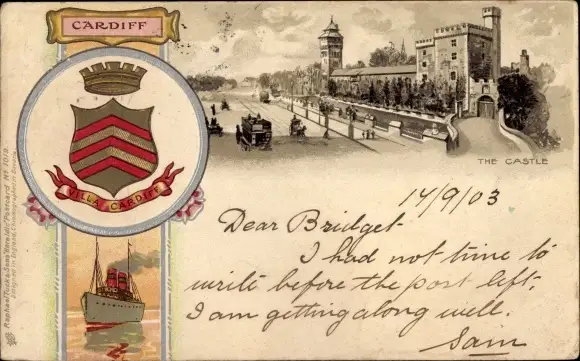 CARDIFF
VILLA CARDIFF
THE CASTLE
14/9/03
Dear Bridget
I had not time to
write before the post left.
I am getting along well.
Sam
Raphael Tuck & Sons "Heraldic" Postcard Nº 1018.